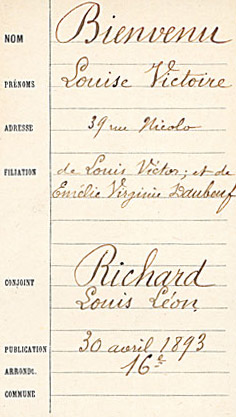 NOM Bienvenu
PRÉNOMS Louise Victoire
ADRESSE 39 rue Nicolo
FILIATION de Louis Victor; et de
Emélie Virginie Daubeuf
CONJOINT Richard
Louis Léon,
PUBLICATION 30 avril 1893
ARRONDt. 16e
COMMUNE